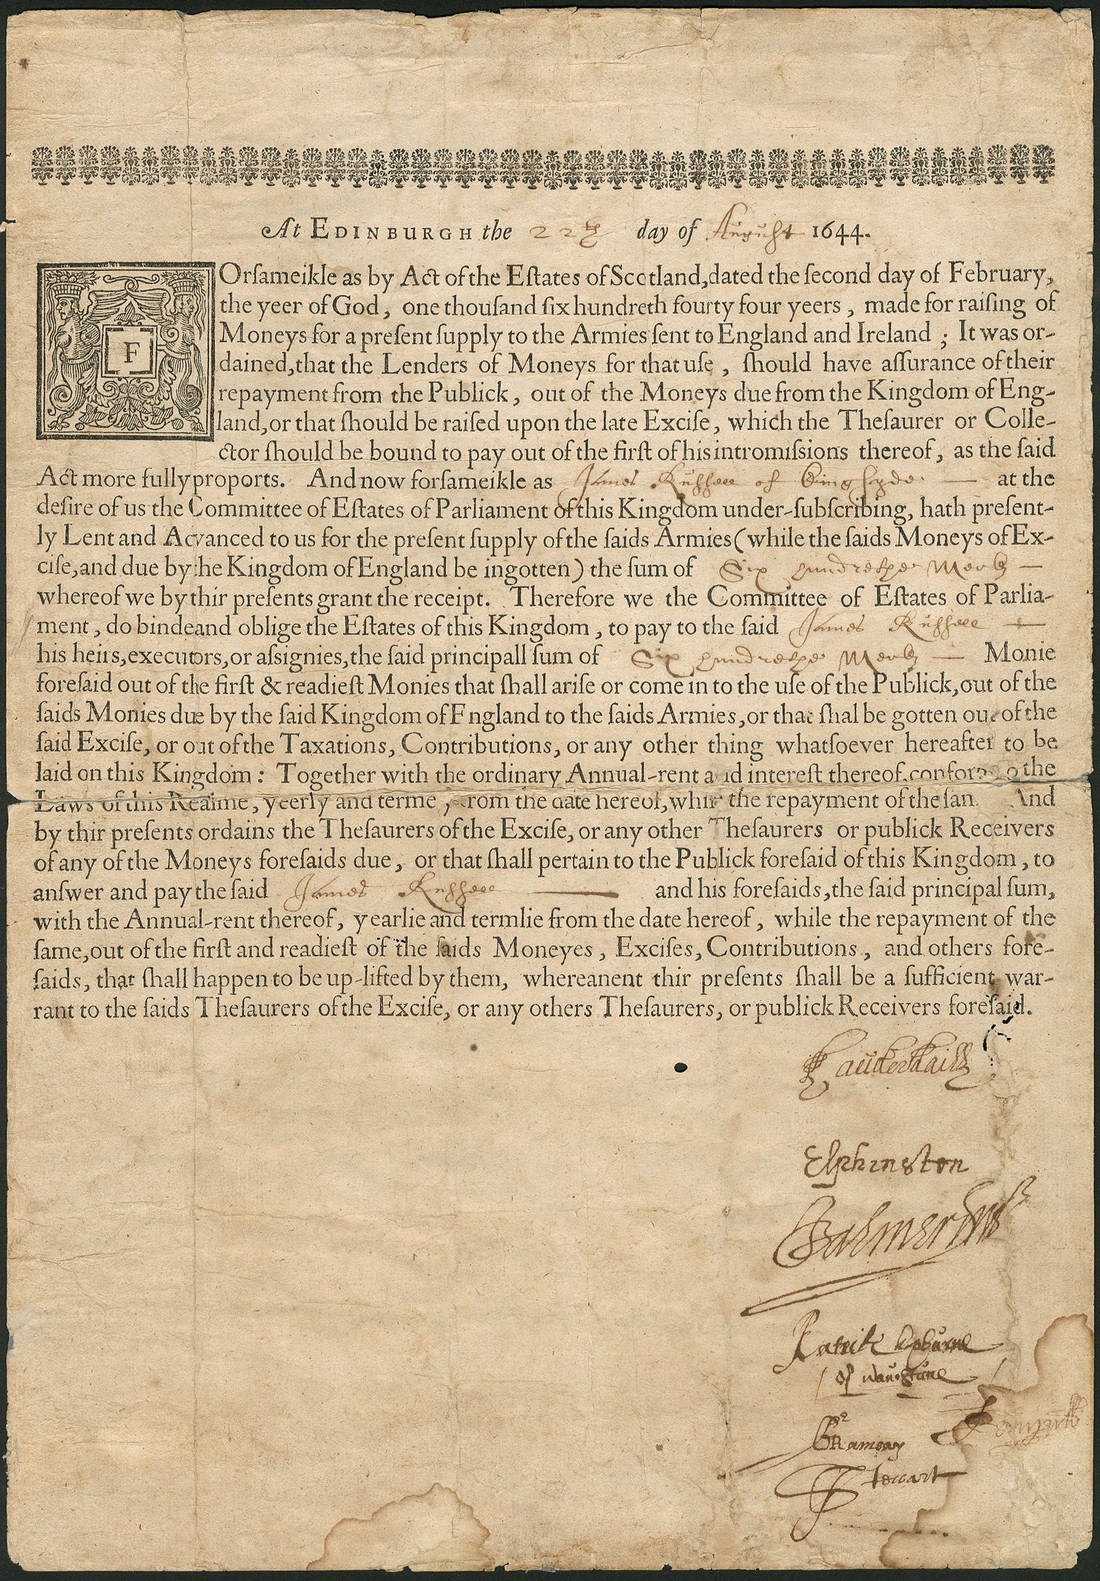 At EDINBURGH the 22th day of August 1644.
FOrſameikle as by Act of the Eſtates of Scotland, dated the ſecond day of February,
the yeer of God, one thouſand ſix hundreth fourty four yeers, made for raiſing of
Moneys for a preſent ſupply to the Armies ſent to England and Ireland; It was or-
dained, that the Lenders of Moneys for that uſe, ſhould have aſſurance of their
repayment from the Publick, out of the Moneys due from the Kingdom of Eng-
land, or that ſhould be raiſed upon the late Exciſe, which the Theſaurer or Colle-
ctor ſhould be bound to pay out of the firſt of his intromiſſions thereof, as the ſaid
Act more fully proports. And now forſameikle as James Ruſſell of at the
deſire of us the Committee of Eſtates of Parliament of this Kingdom under-ſubſcribing, hath preſent-
ly Lent and Advanced to us for the preſent ſupply of the ſaids Armies (while the ſaids Moneys of Ex-
ciſe, and due by the Kingdom of England be ingotten) the ſum of Six hundrethe Merks
whereof we by thir preſents grant the receipt. Therefore we the Committee of Eſtates of Parlia-
ment, do binde and oblige the Eſtates of this Kingdom, to pay to the ſaid James Ruſſell
his heirs, executors, or aſſignies, the ſaid principall ſum of Six hundrethe Merks Monie
foreſaid out of the firſt & readieſt Monies that ſhall ariſe or come in to the uſe of the Publick, out of the
ſaids Monies due by the ſaid Kingdom of England to the ſaids Armies, or that ſhal be gotten out of the
ſaid Exciſe, or out of the Taxations, Contributions, or any other thing whatſoever hereafter to be
laid on this Kingdom: Together with the ordinary Annual-rent and intereſt thereof, conform to the
Laws of this Realme, yeerly and terme from the date hereof, the repayment of the And
by thir preſents ordains the Theſaurers of the Exciſe, or any other Theſaurers or publick Receivers
of any of the Moneys foreſaids due, or that ſhall pertain to the Publick foreſaid of this Kingdom, to
anſwer and pay the ſaid James Ruſſell and his foreſaids, the ſaid principal ſum,
with the Annual-rent thereof, yearlie and termlie from the date hereof, while the repayment of the
ſame, out of the firſt and readieſt of the ſaids Moneyes, Exciſes, Contributions, and others fore-
ſaids, that ſhall happen to be up-lifted by them, whereanent thir preſents ſhall be a ſufficient war-
rant to the ſaids Theſaurers of the Exciſe, or any others Theſaurers, or publick Receivers foreſaid.
Lauderdaill
Elphinston
Balmerino
Patrik
of
Ramsay
Stewart